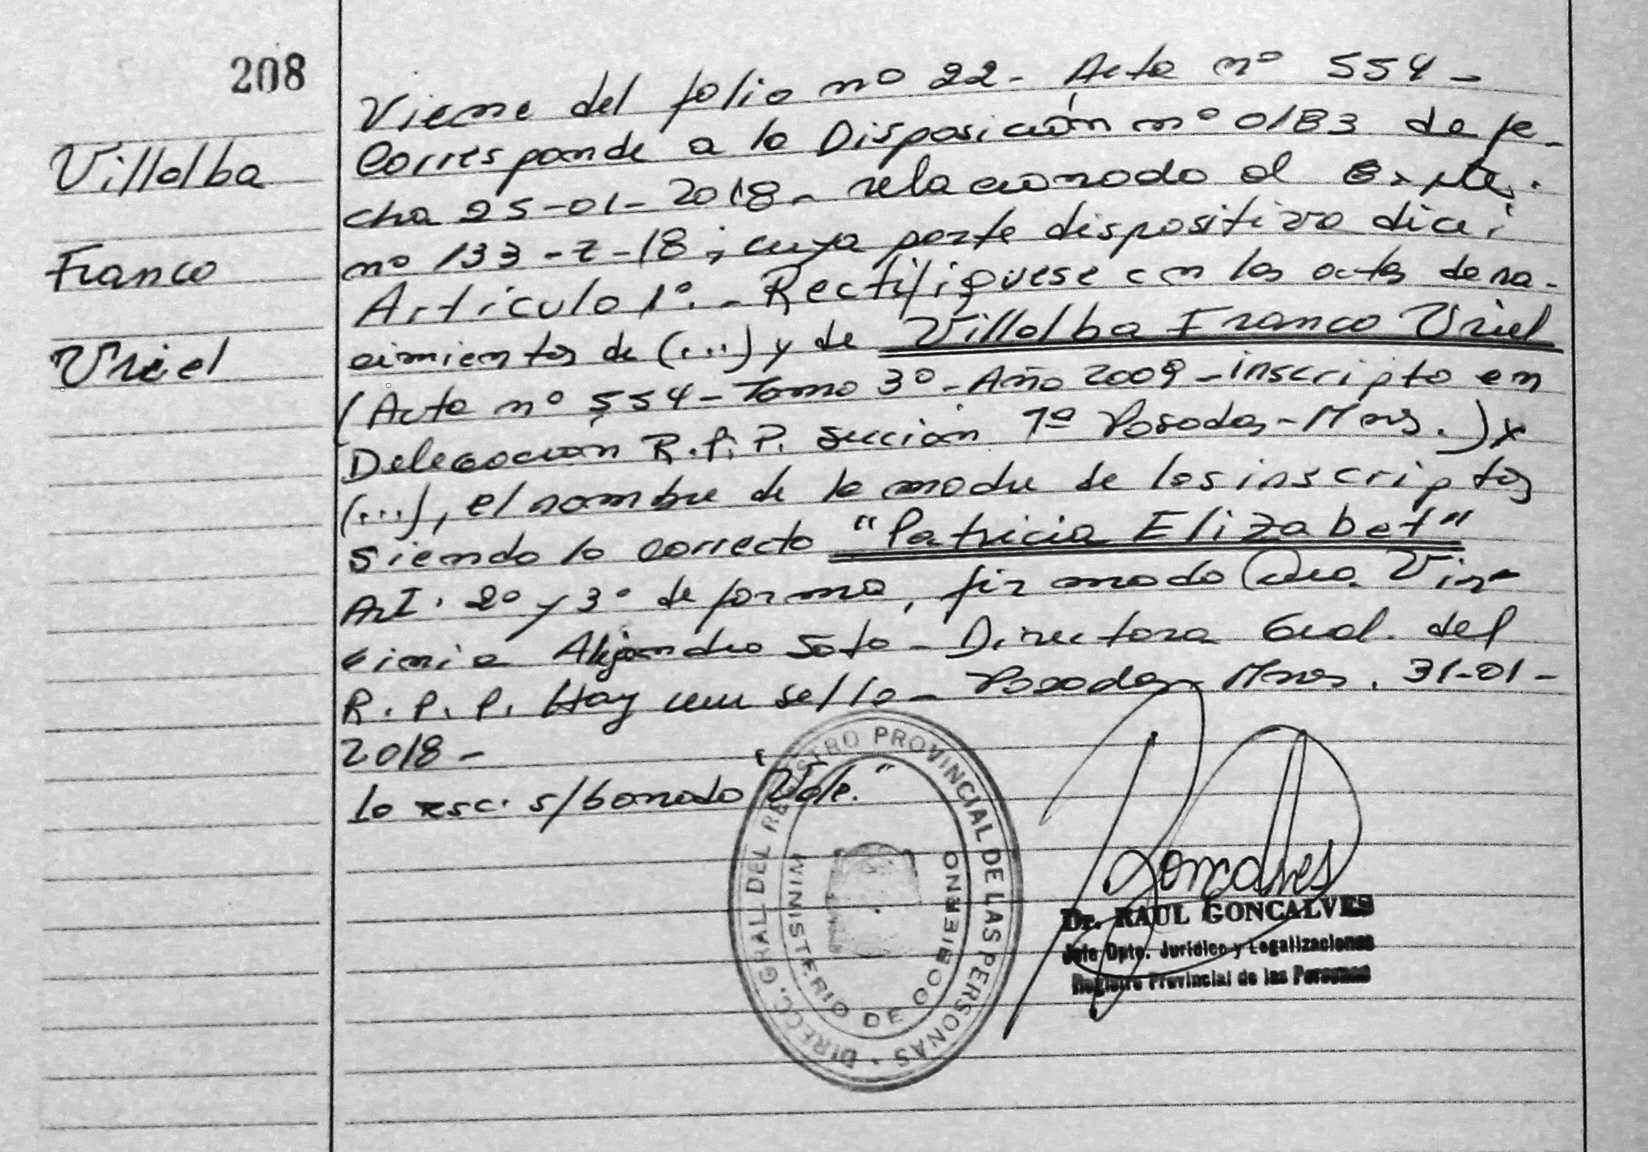 208
Villalba
Franco
Uriel
Viene del folio nº 22- Acta nº 554-
Corresponde a la Disposición nº 0183 de fe-
cha 25-01-2018- relacionado al Expte.
nº 133-Z-18; cuya parte dispositiva dice:
Artículo 1º.- Rectifíquese en las actas de na-
cimientos de (...) y de Villalba Franco Uriel
(Acta nº 554-Tomo 3º-Año 2009-inscripto en
Delegación R.P.P. sección 7ª Posadas-Mnes.) y
(...), el nombre de la madre de los inscriptos
siendo lo correcto "Patricia Elizabet"
Art. 2º y 3º de forma, firmado Dra. Vir-
ginia Alejandra Soto-Directora Gral. del
R.P.P. Hay un sello- Posadas Mnes. 31-01-
2018-
lo esc. s/borrado "Vale."
DIRECC. GRAL DEL REGISTRO PROVINCIAL DE LAS PERSONAS
MINISTERIO DE GOBIERNO
Goncalves
Dr. RAUL GONCALVES
Jefe Dpto. Jurídico y Legalizaciones
Registro Provincial de las Personas